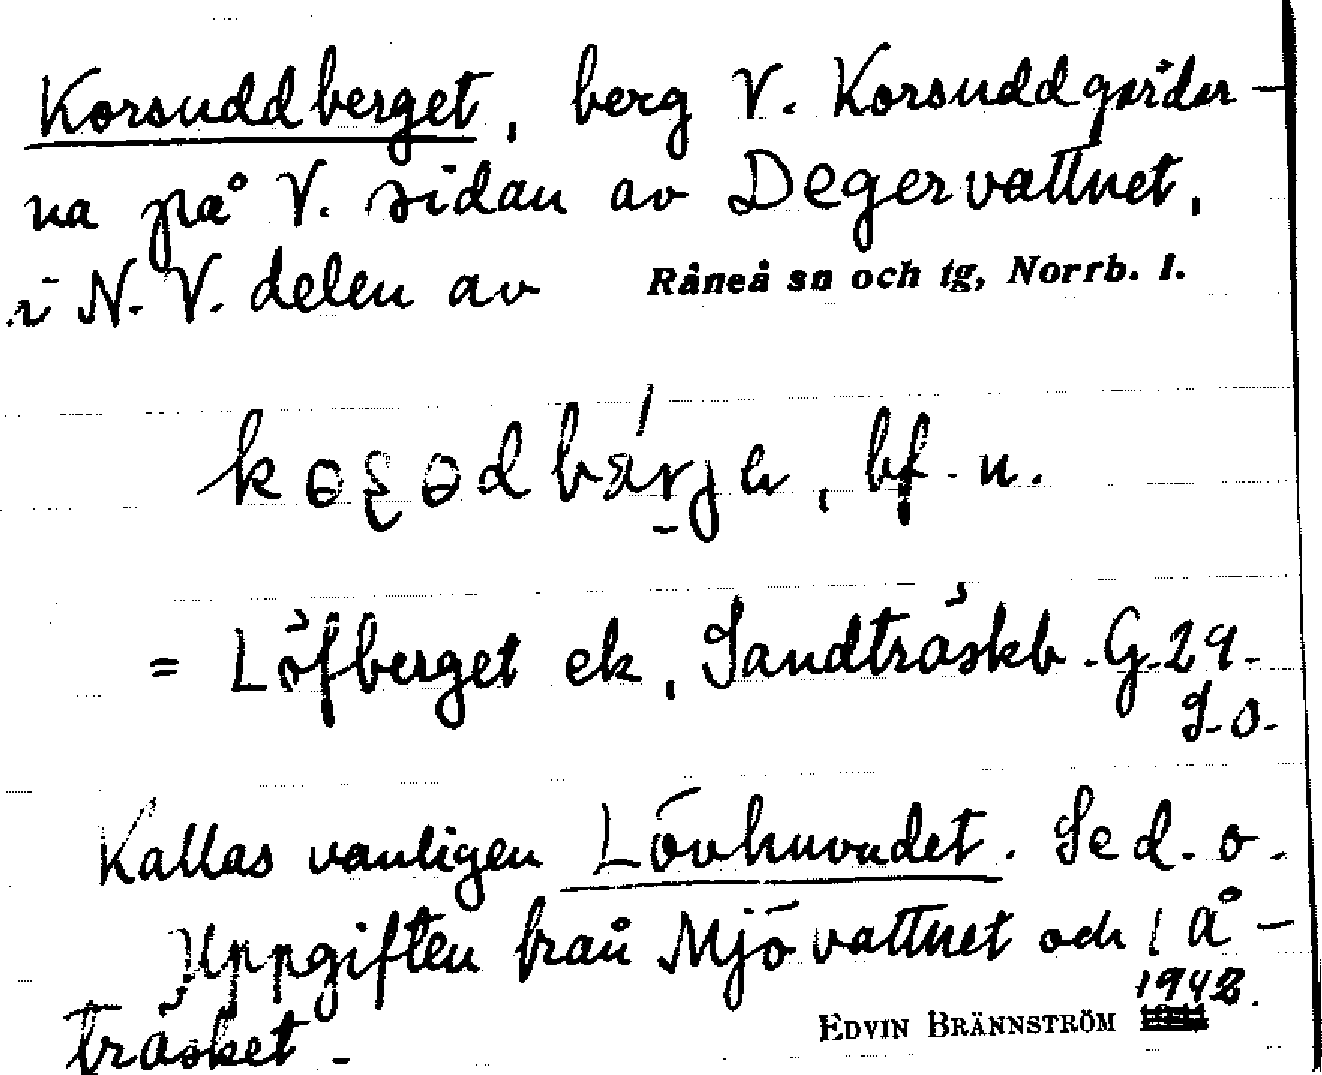 Korsuddberget, berg V. Korsuddgårdar-
na på V. sidan av Degervattnet,
i N.V. delen av Råneå sn och tg, Norrb. l.
bf. n.
= Löfberget ek, Sandträskb. G. 29.
S. o.
Kallas vanligen Lövhuvudet. Se d. o.
Uppgiften från Mjövattnet och Å-
träsket.
EDVIN BRÄNNSTRÖM 1942.